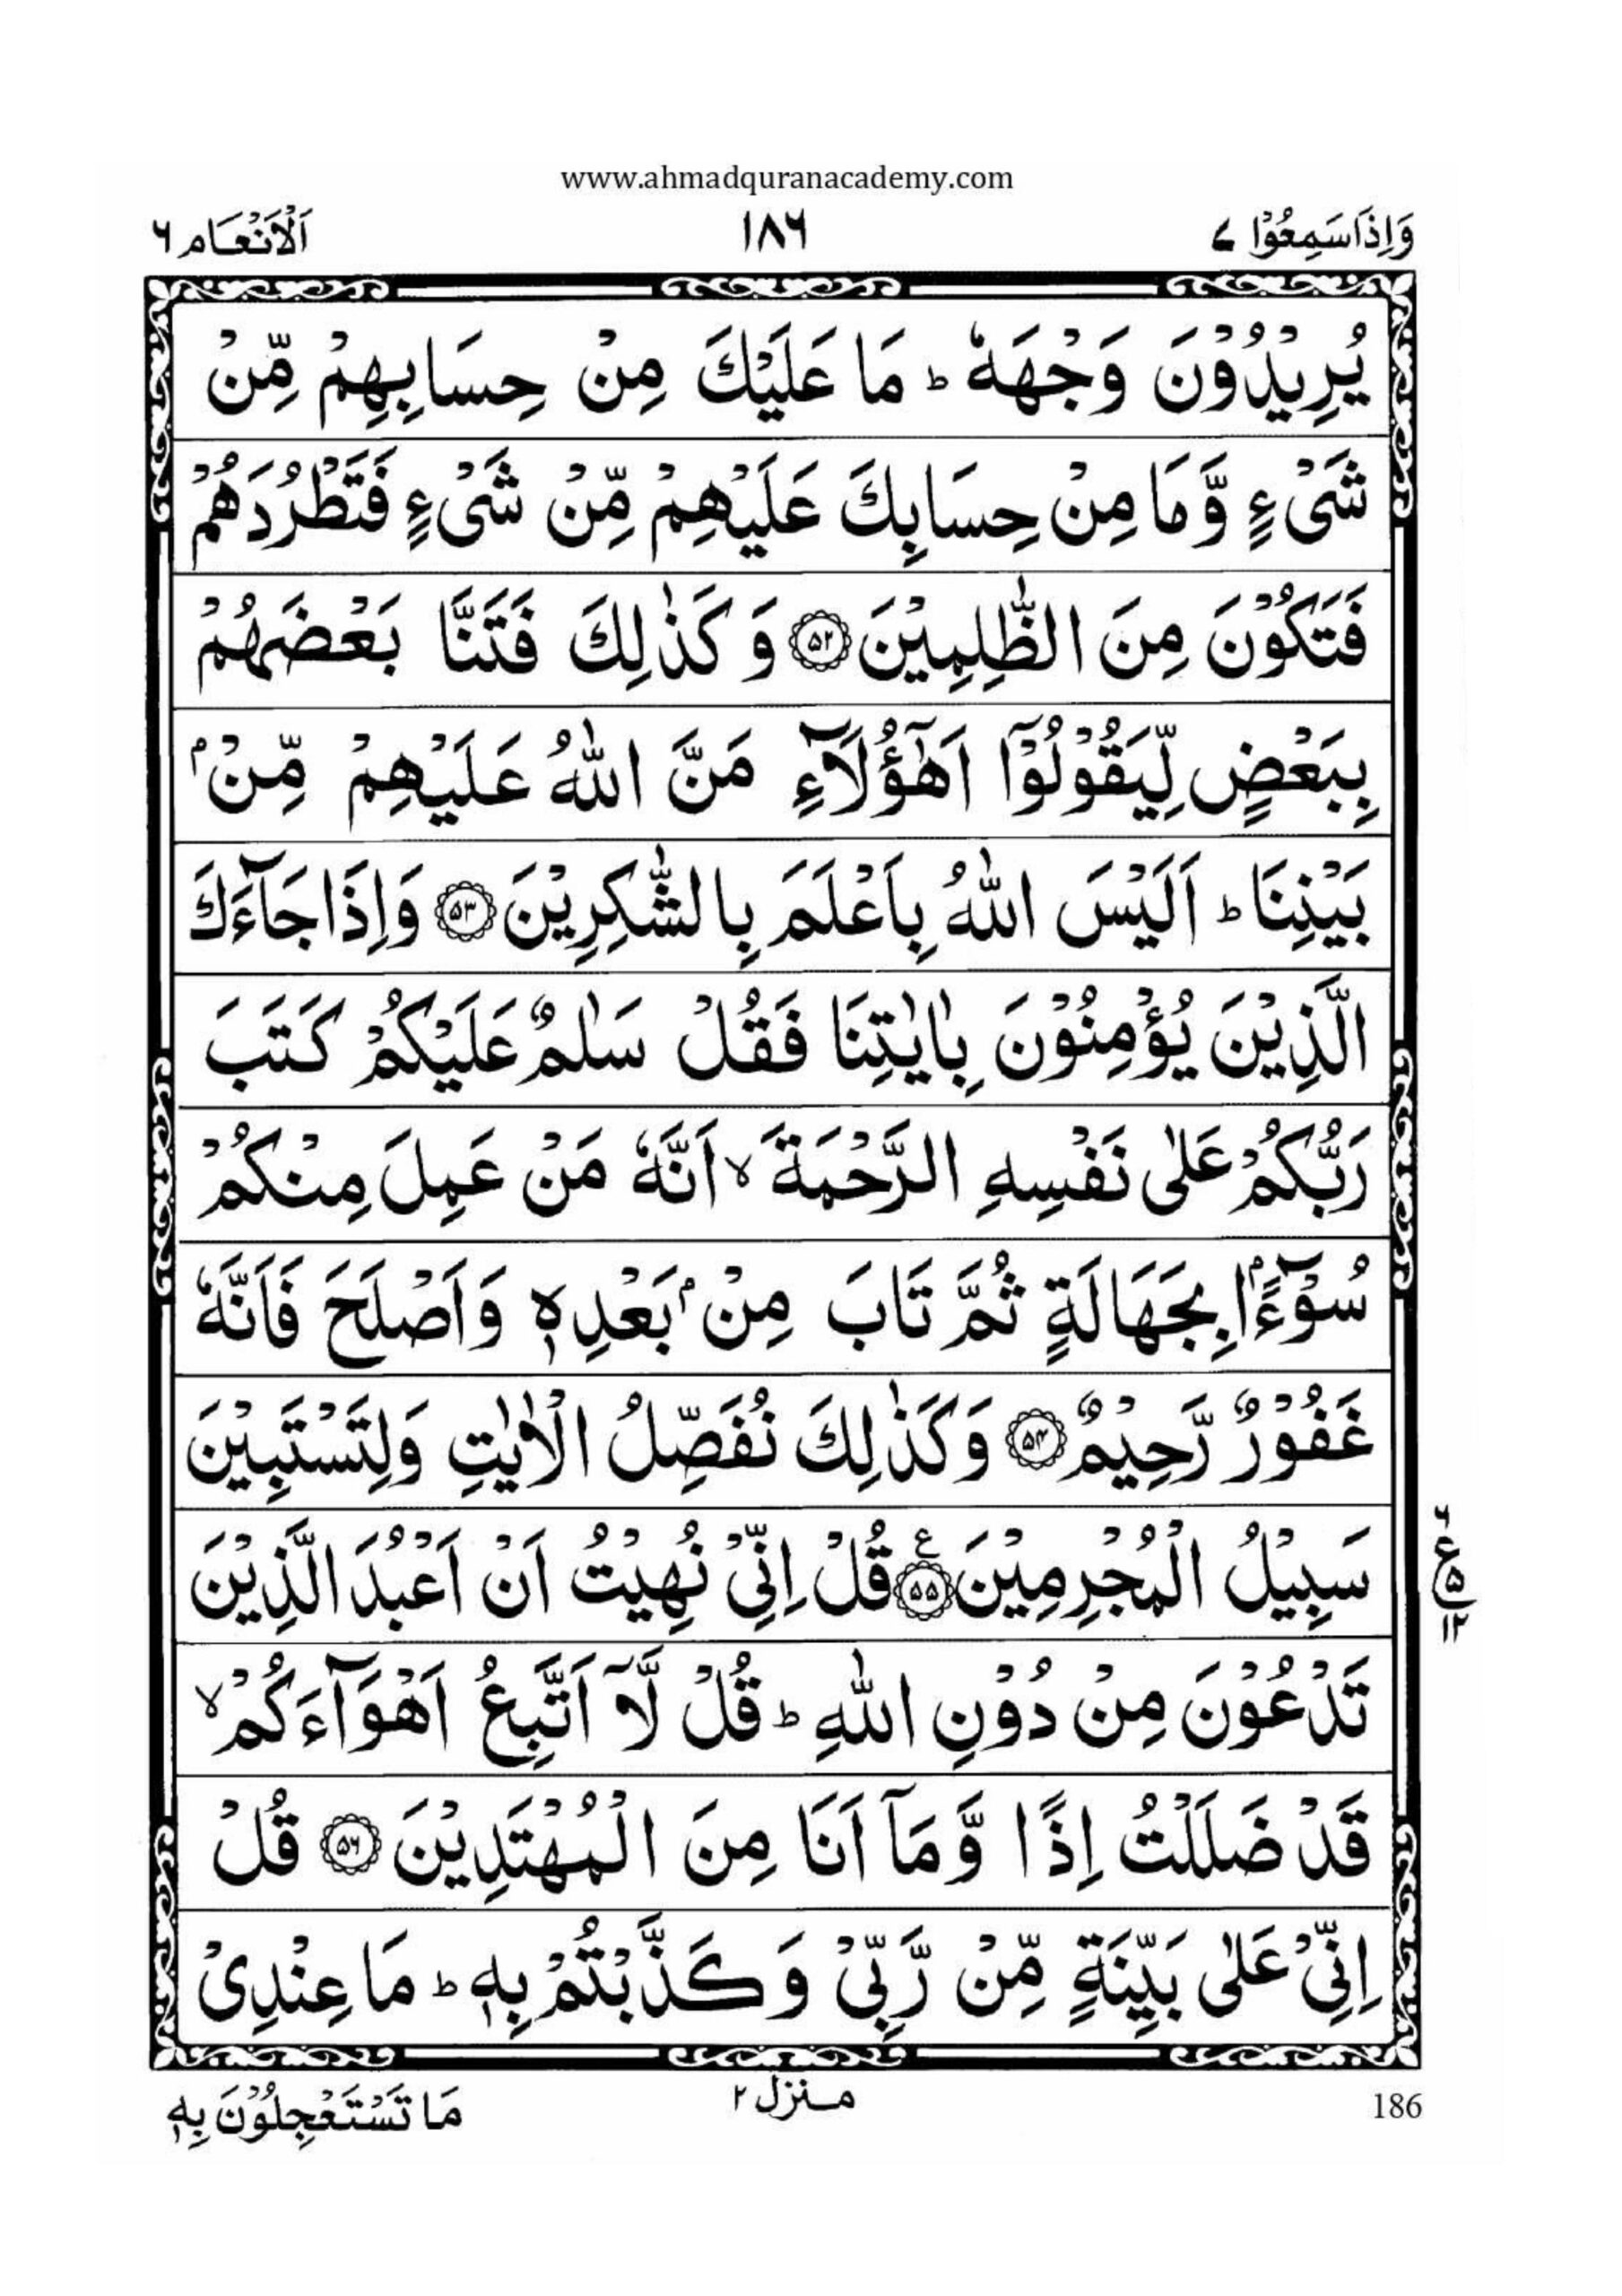 www.ahmadquranacademy.com
وَاِذَاسَمِعُوْا ۷
۱۸۶
اَلْاَنْعَام ۶
يُرِيْدُوْنَ وَجْهَهٗ ؕ مَا عَلَيْكَ مِنْ حِسَابِهِمْ مِّنْ
شَيْءٍ وَّمَا مِنْ حِسَابِكَ عَلَيْهِمْ مِّنْ شَيْءٍ فَتَطْرُدَهُمْ
فَتَكُوْنَ مِنَ الظّٰلِمِيْنَ ۝۵۲ وَ كَذٰلِكَ فَتَنَّا بَعْضَهُمْ
بِبَعْضٍ لِّيَقُوْلُوْۤا اَهٰۤؤُلَآءِ مَنَّ اللّٰهُ عَلَيْهِمْ مِّنْۢ
بَيْنِنَا ؕ اَلَيْسَ اللّٰهُ بِاَعْلَمَ بِالشّٰكِرِيْنَ ۝۵۳ وَاِذَا جَآءَكَ
الَّذِيْنَ يُؤْمِنُوْنَ بِاٰيٰتِنَا فَقُلْ سَلٰمٌ عَلَيْكُمْ كَتَبَ
رَبُّكُمْ عَلٰى نَفْسِهِ الرَّحْمَةَ ۙ اَنَّهٗ مَنْ عَمِلَ مِنْكُمْ
سُوْٓءًۢا بِجَهَالَةٍ ثُمَّ تَابَ مِنْۢ بَعْدِهٖ وَاَصْلَحَ فَاَنَّهٗ
غَفُوْرٌ رَّحِيْمٌ ۝۵۴ وَكَذٰلِكَ نُفَصِّلُ الْاٰيٰتِ وَلِتَسْتَبِيْنَ
سَبِيْلُ الْمُجْرِمِيْنَ ۝۵۵ ع قُلْ اِنِّيْ نُهِيْتُ اَنْ اَعْبُدَ الَّذِيْنَ
ع ۵ ۱۲
تَدْعُوْنَ مِنْ دُوْنِ اللّٰهِ ؕ قُلْ لَّاۤ اَتَّبِعُ اَهْوَآءَكُمْ ۙ
قَدْ ضَلَلْتُ اِذًا وَّمَاۤ اَنَا مِنَ الْمُهْتَدِيْنَ ۝۵۶ قُلْ
اِنِّيْ عَلٰى بَيِّنَةٍ مِّنْ رَّبِّيْ وَ كَذَّبْتُمْ بِهٖ ؕ مَا عِنْدِيْ
186
منزل ۲
مَا تَسْتَعْجِلُوْنَ بِهٖ